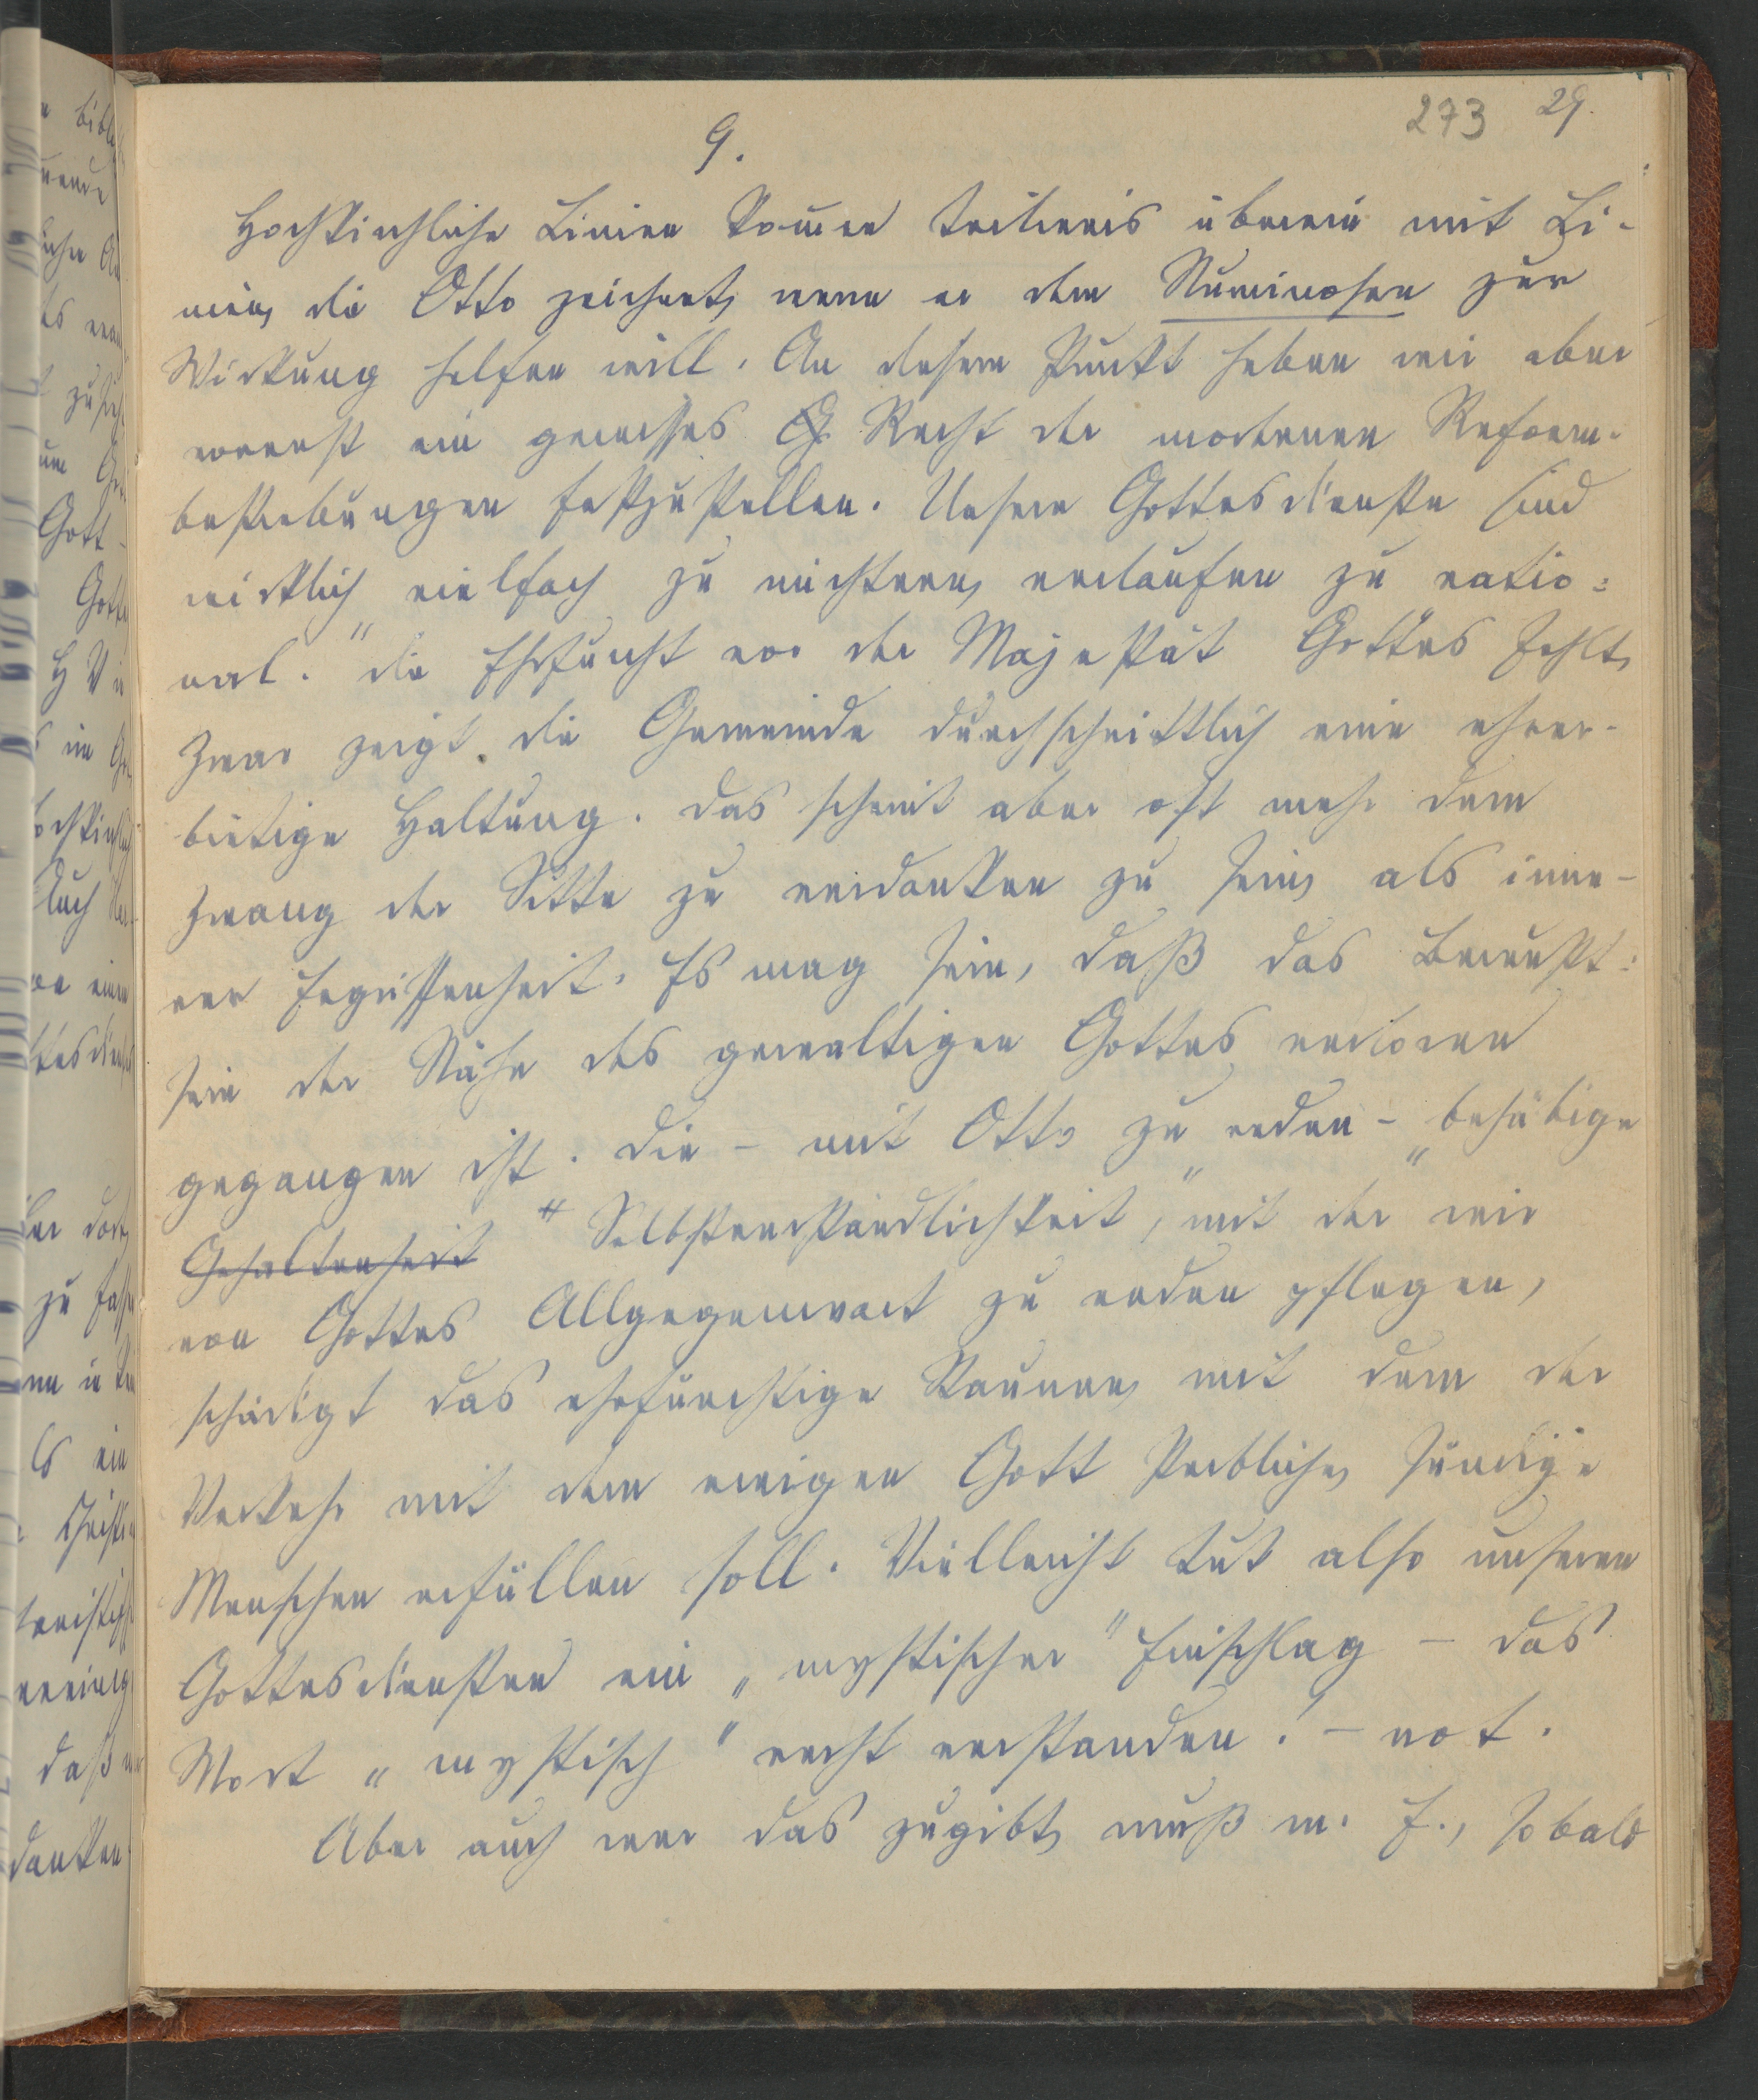 273 29.
9.
Hochkirchliche Linien kommen teilweis überein mit Li-
nien, die Otto zeichnet, wenn er dem Numinosen zur
Wirkung helfen will. An diesem Punkt haben wir aber
vorerst ein gewisses G. Recht der modernen Reform-
bestrebungen festzustellen. Unsere Gottesdienste sind
wirklich vielfach zu nüchtern, verlaufen zu "ratio-
nal." die Ehrfurcht vor der Majestät Gottes fehlt,
Zwar zeigt die Gemeinde durchschnittlich eine ehrer-
bietige Haltung. das scheint aber oft mehr dem
Zwang der Sitte zu verdanken zu sein, als inne-
rer Ergriffenheit. Es mag sein, daß das Bewußt-
sein der Nähe des gewaltigen Gottes verloren
gegangen ist. Die - mit Otto zu reden - "behäbige
Gehaltenheit Selbstverständlichkeit", mit der wir
von Gottes Allgegenwart zu reden pflegen,
schädigt das ehrfürchtige Staunen, mit dem der
Verkehr mit dem ewigen Gott sterbliche, sündige
Menschen erfüllen soll. Vielleicht tut also unseren
Gottesdiensten ein "mystischer" Einschlag - das
Wort "mystisch" recht verstanden! - not.
Aber auch wer das zugibt, muß m. E., sobald